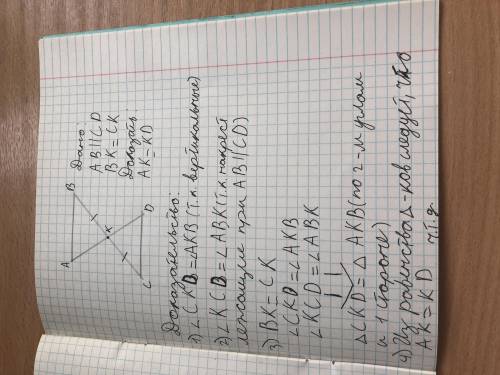 A
B
K
C
D
Дано:
AB||CD
BK=CK
Доказать:
AK=KD
Доказательство:
1) ∠CKD=∠AKB (т.к. вертикальные)
2) ∠KCD=∠ABK (т.к. накрест
лежащие при AB||CD)
3) BK=CK
∠CKD=∠AKB
∠KCD=∠ABK
△CKD=△AKB (по 2-м углам
и 1 стороне)
4) Из равенства △-ков следует, что
AK=KD
ч.т.д.